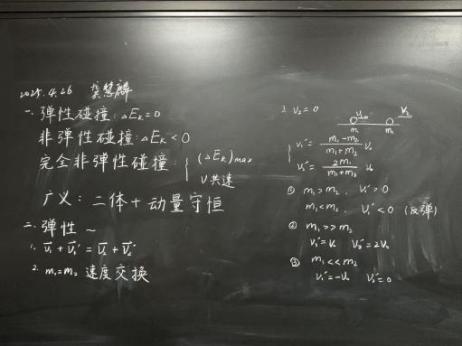 2025.4.26 龚慧麟
一. 弹性碰撞: ΔEₖ=0
非弹性碰撞: ΔEₖ<0
完全非弹性碰撞: { (ΔEₖ)max
V共速
广义: 二体+动量守恒
二. 弹性~
1. V₁+V₁'=V₂+V₂'
2. m₁=m₂ 速度交换
3. V₂=0
m₁ m₂
V₁'=(m₁-m₂)/(m₁+m₂) V₀
V₂'=2m₁/(m₁+m₂) V₀
① m₁>m₂, V₁'>0
m₁<m₂, V₁'<0 (反弹)
② m₁>>m₂
V₁'=V₀ V₂'=2V₀
③ m₁<<m₂
V₁'=-V₀ V₂'=0